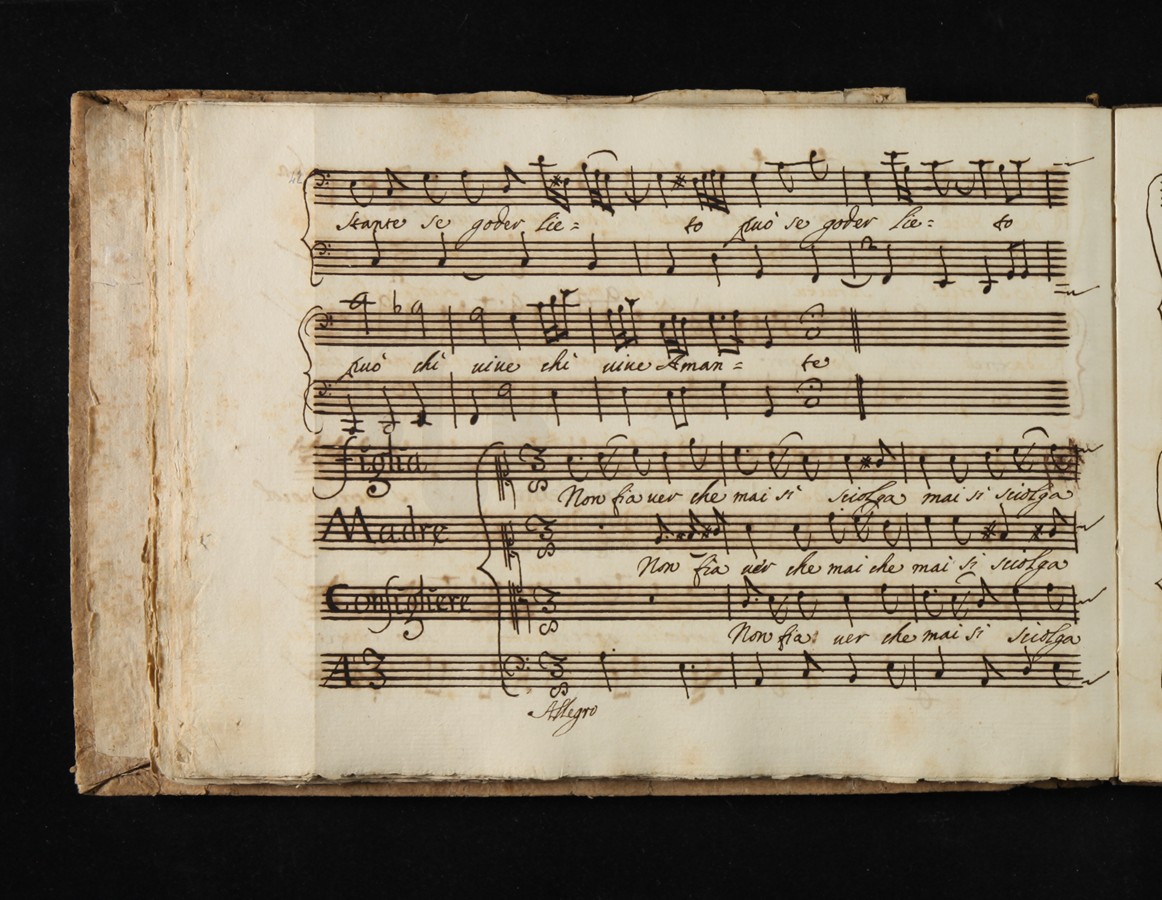 stante se goder lie= to può se goder lie= to
può chi uiue chi uiue Aman= te
Figlia
Non fia uer che mai si sciolga mai si sciolga
Madre
Non fia uer che mai che mai si sciolga
Consigliere
Non fia uer che mai si sciolga
A 3
Allegro